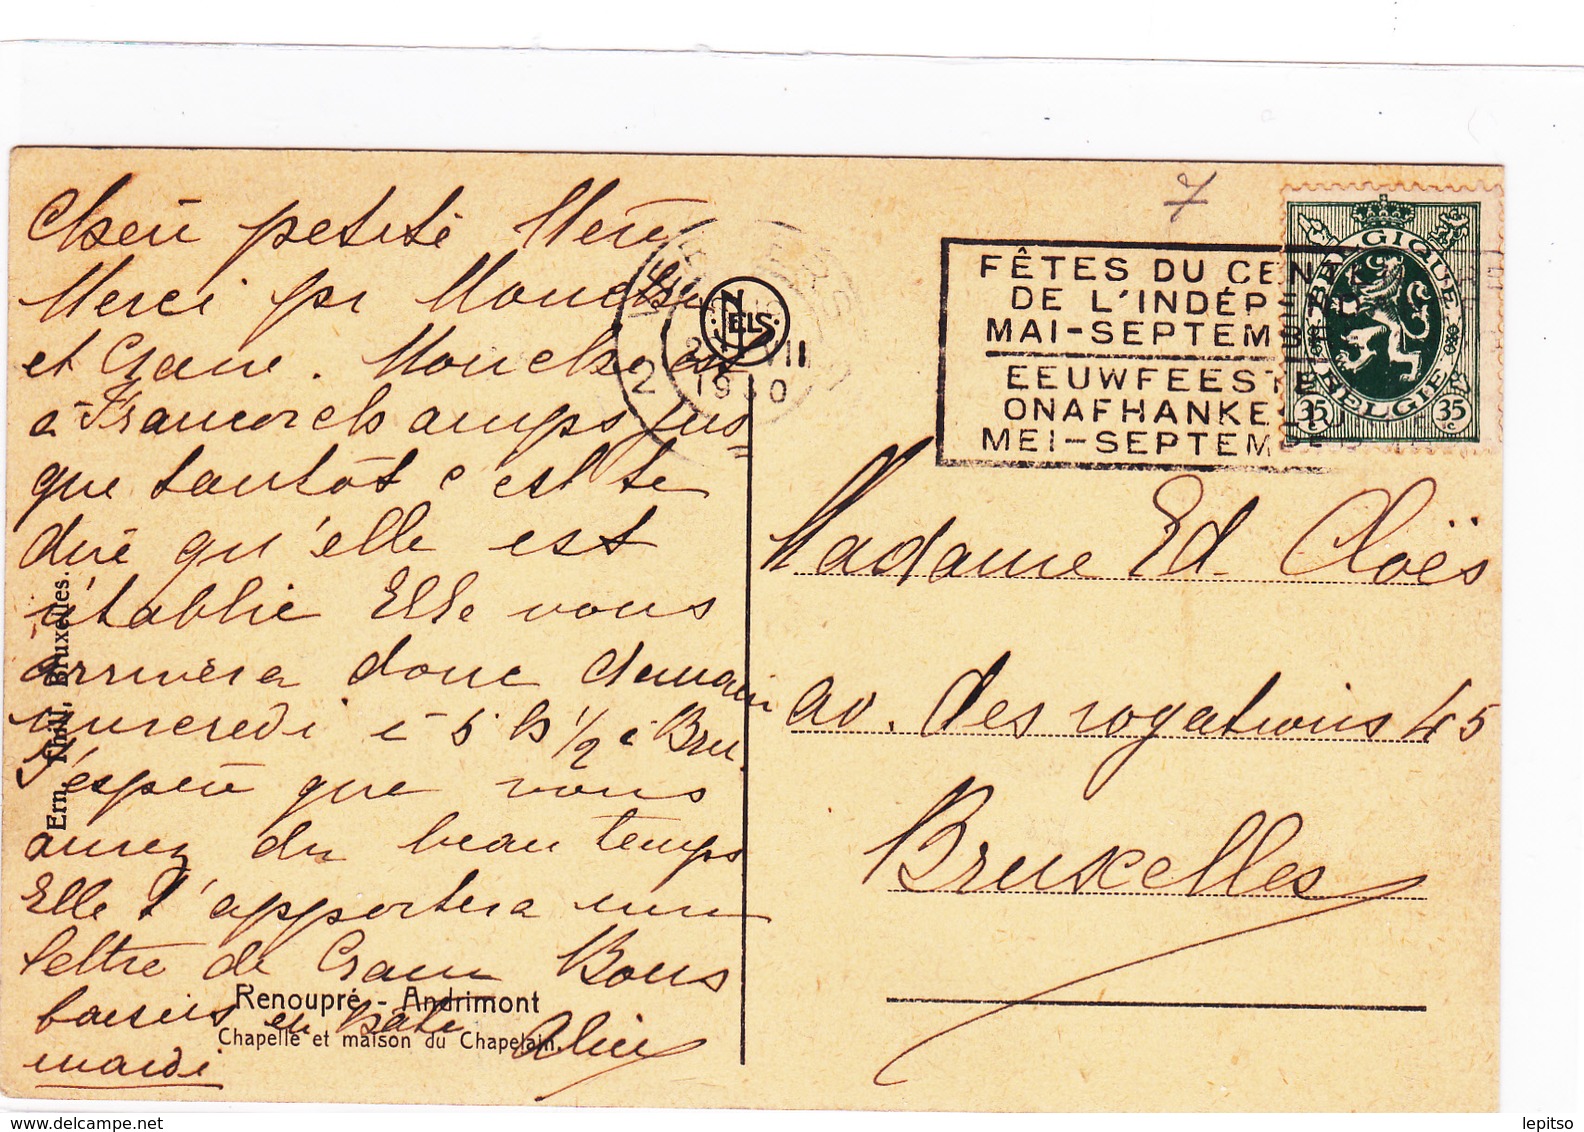 Chère petite Mère
Merci pr Mouche
et Crane. Mouche est
à Francorchamps jus=
que tantôt c'est te
dire qu'elle est
établie Elle vous
arrivera donc demain
mercredi à 5 h 1/2 à Bru.
J'espère que vous
aurez du beau temps
Elle t'apportera une
lettre de Crane Bons
baisers en hâte Alice
mardi
Renoupré - Andrimont
Chapelle et maison du Chapelain.
Ern. Thill, Bruxelles.
NELS
2 VII
1930
2
7
FÊTES DU CEN
DE L'INDÉP
MAI-SEPTEMB
EEUWFEESTE
ONAFHANKE
MEI-SEPTEM
BELGIQUE
BELGIE
35 c 35 c
Madame Ed. Cloës
av. des rogations 45
Bruxelles
lepitso